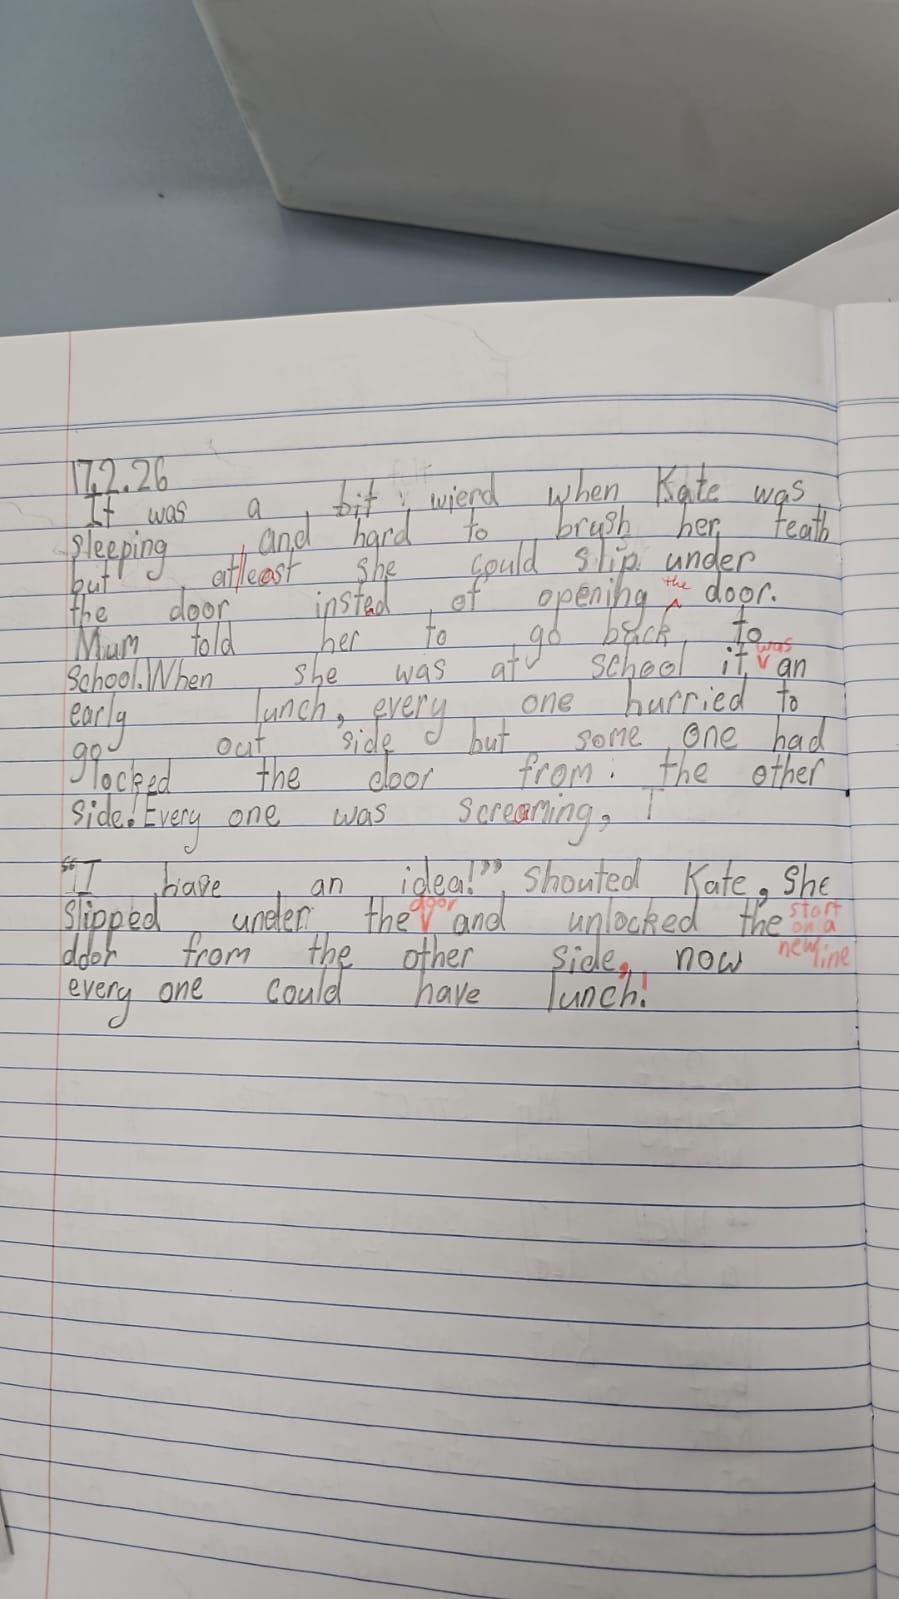 17.2.26
It was a bit wierd when Kate was
sleeping and hard to brush her teath
but atleast she could slip under
the door instad of opening the door.
Mum told her to go back to
school. When she was at school it was an
early lunch, every one hurried to
go out side but some one had
locked the door from the other
side. Every one was screaming, I
"I have an idea!" shouted Kate, she
slipped under the door and unlocked the start
on a
door from the other side, now new line
every one could have lunch!